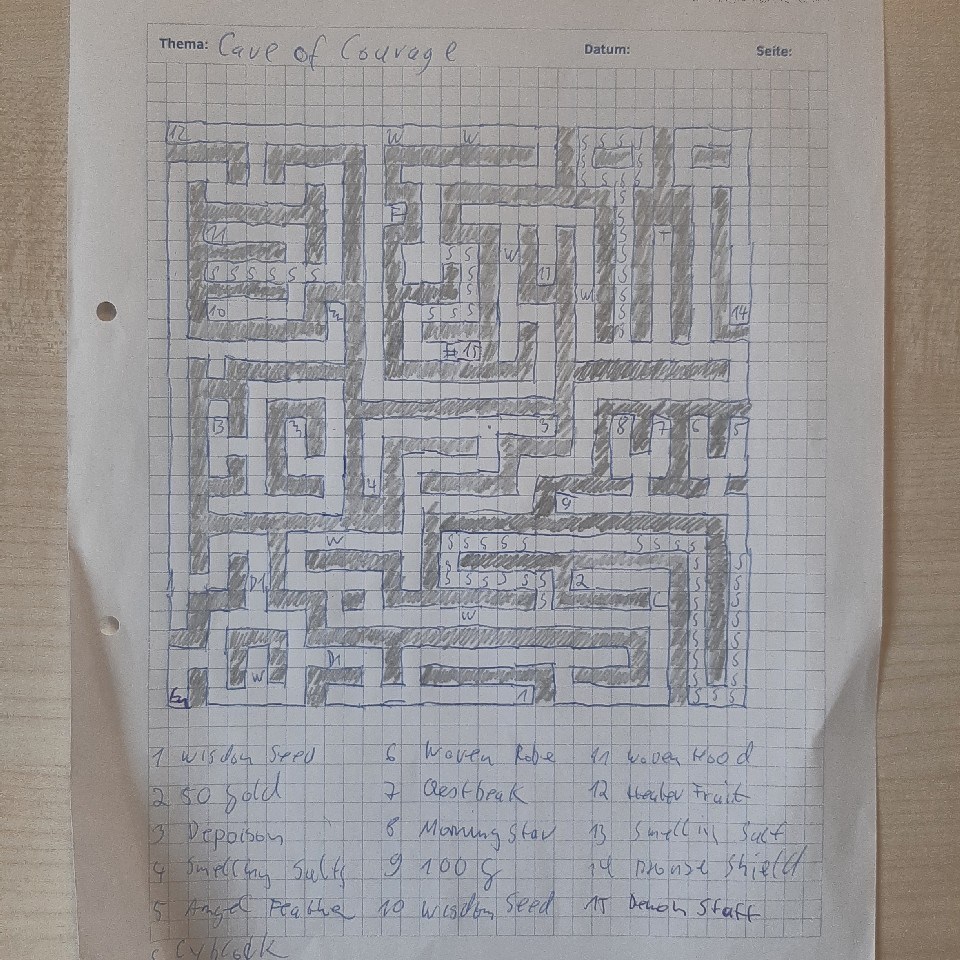 Thema: Cave of Courage Datum: Seite:
12 W W S S S S
S S
S S S S
F S
11 S T
S S W S
S S S S S S S 13 S
S W S
10 3 S S S S 14
S
# 15
B 3 3 8 7 6 5
4
9
W S S S S S S S S S
S S S
D1 S S S S S S 2 S S
S C S S
W S S
S S
D1 S S
W S S
En 1 S S S
1 Wisdom Seed 6 Woven Robe 11 Woven Hood
2 50 Gold 7 Qestbeak 12 Healer Fruit
3 Depoison 8 Morning Star 13 Smelling Salt
4 Smelling Salts 9 100 g 14 Bronze Shield
5 Angel Feather 10 Wisdom Seed 15 Demon Staff